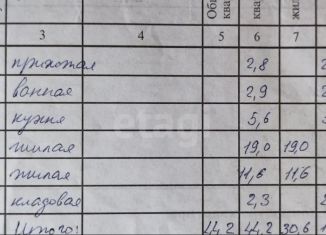 Об квар ква жил
3 4 5 6 7
прихожая 2,8
ванная 2,9
кухня 5,6
жилая 19,0 19,0
жилая 11,6 11,6
кладовая 2,3
Итого: 44,2 44,2 30,6
etagi